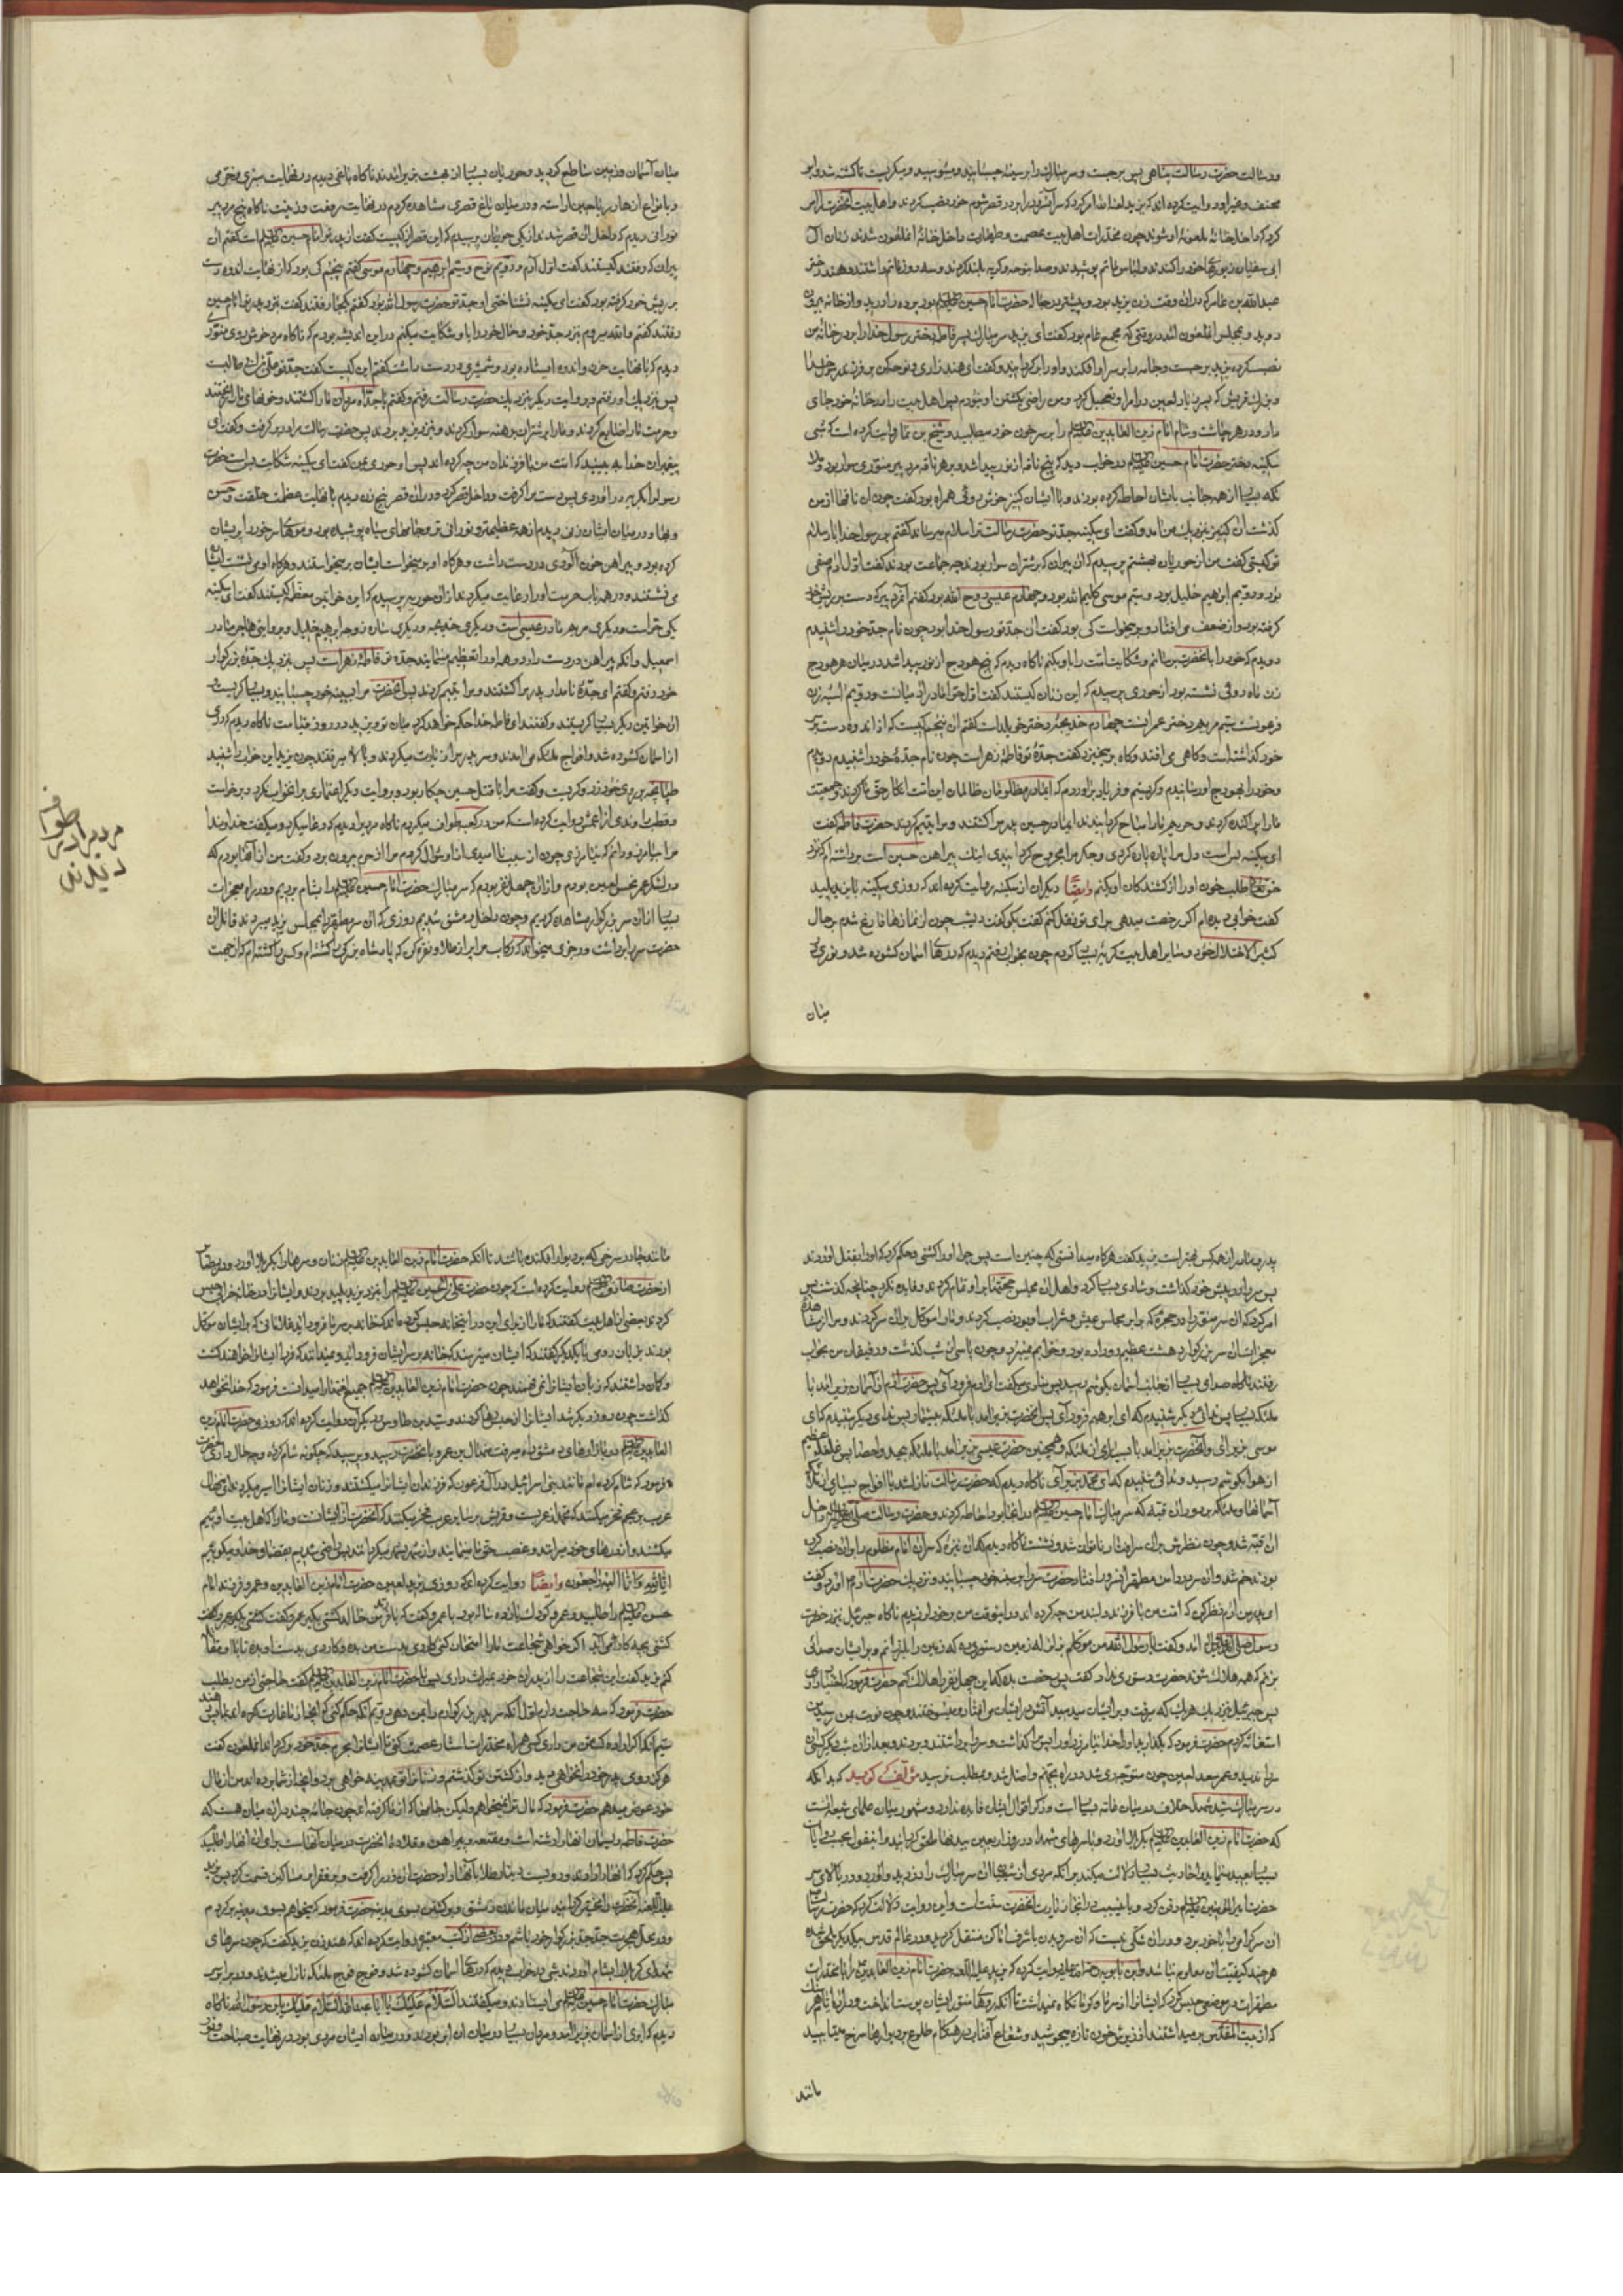 و رسالت حضرت رسالت پناهی پس برجست و سر مبارك را بر سینه چسبانید و میبوسید و میگریست تا كشته شد و ابو
مخنف و غیر او روایت كرده اند كه یزید لعنه الله امر كرد كه سر آنسرور را بر در قصر شوم خود نصب كردند و اهل بیت آنحضرت را امر
كرد كه داخل خانهٔ ملعونهٔ او شوند چون مخدرات اهل بیت عصمت و طهارت داخل خانهٔ آن ملعون شدند زنان آل
ابی سفیان زیورهای خود را كندند و لباس ماتم پوشیدند و صدا بنوحه و گریه بلند كردند و سه روز ماتم داشتند و هند دختر
عبدالله بن عامر كه در آن وقت زن یزید بود و پیشتر در حبالهٔ حضرت امام حسین بود پرده را درید و از خانه بیرون
دوید و بمجلس آن ملعون آمد در وقتی كه مجمع عام بود گفت ای یزید سر مبارك پسر فاطمه دختر رسول خدا را بر در خانهٔ من
نصب كرده یزید برجست و جامه را بر سر او افكند و او را برگردانید و گفت ای هند زاری و نوحه كن بر فرزند رسول خدا
و بزرك قریش كه پسر زیاد لعین در امر او تعجیل كرد و من راضی بكشتن او نبودم پس اهل بیت را در خانهٔ خود جای
داد و در هر چاشت و شام امام زین العابدین را بر سر خوان خود میطلبید و شیخ بن نما روایت كرده است كه شبی
سكینه دختر حضرت امام حسین در خواب دید كه پنج ناقه از نور پیدا شد و بر هر ناقه مرد پیر منوری سوار بود و ملا
ئكه بسیار از همه جانب بایشان احاطه كرده بودند و با ایشان كنیز خوش روئی همراه بود گفت چون آن ناقها از من
گذشت آن كنیز بنزدیك من آمد و گفت ای سكینه جد تو حضرت رسالت ترا سلام میرساند گفتم بر رسول خدا باد سلام
تو كیستی گفت من از حوریان بهشتم پرسیدم كه آن پیران كه بر شتران سوار بودند چه جماعت بودند گفت اول آدم صفی
بود و دویم ابرهیم خلیل بود و سیم موسی كلیم الله بود و چهارم عیسی روح الله بود گفتم آنمرد پیر كه دست بر ریش خود
گرفته بود و از ضعف می افتاد و بر میخواست كی بود گفت آن جد تو رسول خدا بود چون نام جد خود را شنیدم
دویدم كه خود را بآنحضرت برسانم و شكایت امت را باو بكنم ناگاه دیدم كه پنج هودج از نور پیدا شد در میان هر هودج
زن ماه روئی نشسته بود از حوری پرسیدم كه این زنان كیستند گفت اول حوا مادر آدمیانست و دویم آسیه زن
فرعونست سیم مریم دختر عمرانست چهارم خدیجه دختر خویلد است گفتم آن پنجم كیست كه از اندوه دست بر سر
خود گذاشته است و گاهی می افتد و گاه بر میخیزد گفت جدهٔ تو فاطمهٔ زهراست چون نام جدهٔ خود را شنیدم دویدم
و خود را بهودج او رسانیدم و گریستم و فریاد بر اوردم كه ای مادر مظلومان ظالمان این امت انكار حق ما كردند و جمعیت
ما را پراكنده كردند و حریم ما را مباح گردانیدند ای مادر حسین پدر مرا كشتند و مرا یتیم كردند حضرت فاطمه گفت
ای سكینه بس است دل مرا پاره پاره كردی و جگر مرا مجروح گردانیدی اینك پیراهن حسین است برداشته ام كه نزد
خدا طلب خون او را از كشندگان او بكنم وایضًا دیگران از سكینه روایت كرده اند كه روزی سكینه با یزید پلید
گفت خوابی دیده ام اگر رخصت میدهی برای تو نقل كنم گفت بگو گفت دیشب چون از نمازها فارغ شدم بر حال
كثیر الاختلال خود و سایر اهل بیت گریهٔ بسیار كردم چون بخواب رفتم دیدم كه درهای آسمان گشوده شد و نوری
میان
میان آسمان و زمین ساطع گردید و حوریان بسیار از بهشت بزیر آمدند ناگاه باغی دیدم در نهایت سبزی و خرمی
و بانواع ازهار و ریاحین آراسته و در میان باغ قصری مشاهده كردم در نهایت رفعت و زینت ناگاه پنج مرد پیر
نورانی دیدم كه داخل آن قصر شدند از یكی حوریان پرسیدم كه این قصر از كیست گفت از پدر تو امام حسین است گفتم آن
پیران كه رفتند كیستند گفت اول آدم و دویم نوح و سیم ابرهیم و چهارم موسی گفتم پنجم كی بود كه از نهایت اندوه دست
بر ریش خود گرفته بود گفت ای سكینه نشناختی او جد تو حضرت رسول الله بود گفتم كجا رفتند گفت بنزد پدر تو امام حسین
رفتند گفتم والله میروم بنزد جد خود و حال خود را باو شكایت میكنم در این اندیشه بودم كه ناگاه مرد خوش روی منوری
دیدم كه با نهایت حزن و اندوه ایستاده بود و شمشیری در دست داشت گفتم این كیست گفت جد تو علی بن ابی طالبست
پس بنزدیك او رفتم و بروایت دیگر بنزدیك حضرت رسالت رفتم و گفتم یا جداه مردان ما را كشتند و خونهای ما را ریختند
و حرمت ما را ضایع كردند و ما را بر شتران برهنه سوار كردند و بنزد یزید بردند پس حضرت رسالت مرا در بر گرفت و گفت ای
پیغمبران خدا به بینید كه امت من با فرزندان من چه كرده اند پس او حوری بمن گفت ای سكینه شكایت بس است حضرت
رسول را بگریه در آوردی پس دست مرا گرفت و داخل قصر كرد و در آن قصر پنج زن دیدم با نهایت عظمت خلقت و حسن
و بها و در میان ایشان زنی دیدم از همه عظیمتر و نورانی تر و جامهای سیاه پوشیده بود و موهای سر خود را پریشان
كرده بود و پیراهن خون آلودی در دست داشت و هر گاه او بر میخواست ایشان بر میخواستند و هرگاه او می نشست ایشان
می نشستند و در همه باب حرمت او را رعایت میكردند از آن حوریه پرسیدم كه این خواتین معظمه كیستند گفت ای سكینه
یكی حوا است و دیگری مریم مادر عیسی است و دیگری خدیجه و دیگری ساره زوجهٔ ابرهیم خلیل و بروایتی هاجر مادر
اسمعیل و آنكه پیراهن در دست دارد و همه او را تعظیم مینمایند جدهٔ تو فاطمهٔ زهراست پس بنزدیك جدهٔ بزرگوار
خود رفتم و گفتم ای جدهٔ نامدار پدر مرا كشتند و مرا یتیم كردند پس آنحضرت مرا بسینهٔ خود چسبانید و بسیار گریست
آن خواتین دیگر بسیار گریستند و گفتند ای فاطمه خدا حكم خواهد كرد میان تو و یزید در روز قیامت ناگاه دیدم كه دری
از آسمان گشوده شد و افواج ملئكه می آمدند و سر پدر مرا زیارت میكردند و بالا میرفتند چون یزید این خواب را شنید
طپانچه بر روی خود زد و گریست و گفت مرا با قتل حسین چكار بود و بروایت دیگر اعتنائی بر آنخواب نكرد و برخواست
و قطب راوندی از اعمش روایت كرده است كه من در كعبه طواف میكردم ناگاه مردیرا دیدم كه دعا میكرد و میگفت خداوندا
مرا بیامرز و دانم كه نیامرزی چون از سبب ناامیدی او از او سؤال كردم مرا از حرم بیرون برد و گفت من از آنها بودم كه
در لشكر عمر نحس لعین بودم و از آن چهل نفر بودم كه سر مبارك حضرت امام حسین را بشام بردیم و در راه معجزات
بسیار از آن سر بزرگوار مشاهده كردیم و چون داخل دمشق شدیم روزی كه آن سر مطهر را بمجلس یزید میبردند قاتل آن
حضرت سر را برداشت و رجزی میخواند كه ركاب مرا پر از طلا و نقره كن كه پادشاه بزرگی را كشته ام و كسی را كشته ام كه از جهت
پدر و مادر از همه كس بهتر است یزید گفت هرگاه میدانستی كه چنین است پس چرا او را كشتی و حكم كرد كه او را بقتل آوردند
پس سر را در پیش خود گذاشت و شادی بسیار كرد و اهل آن مجلس حجتها بر او تمام كردند و فایده نكرد چنانچه گذشت پس
امر كرد كه آن سر منور را در حجرهٔ كه برابر مجلس عیش و شراب او بود نصب كردند و ما را موكل بر آن سر كردند و مرا از مشاهدهٔ
معجزات آن سر بزرگوار دهشت عظیم رو داده بود و خوابم نمیبرد و چون پاسی از شب گذشت و رفیقان من بخواب
رفتند ناگاه صدای بسیار از جانب آسمان بگوشم رسید پس منادی گفت ای آدم فرود آی پس حضرت آدم از آسمان بزیر آمد با
ملئكهٔ بسیار پس ندائی دیگر شنیدم كه ای ابرهیم فرود آی پس آنحضرت بزیر آمد با ملئكهٔ بیشمار پس ندای دیگر شنیدم كه ای
موسی بزیر آی و آنحضرت بزیر آمد با بسیاری از ملئكه و همچنین حضرت عیسی بزیر آمد با ملئكهٔ بیحد و احصا پس غلغلهٔ عظیم
از هوا بگوشم رسید و ندائی شنیدم كه ای محمد بزیر آی ناگاه دیدم كه حضرت رسالت نازل شد با افواج بسیاری از ملئكهٔ
آسمانها و ملئكه بر دور آن قبه كه سر مبارك امام حسین در آنجا بود احاطه كردند و حضرت رسالت صلی الله علیه وآله داخل
آن قبه شد و چون نظرش بر آن سر افتاد ناتوان شد و نشست ناگاه دیدم كه آن نیزهٔ كه سر آن امام مظلوم را بر آن نصب كرده
بودند خم شد و آن سر در دامن مطهر آنسرور افتاد حضرت سر را بر سینهٔ خود چسبانید و نزدیك حضرت آدم آورد و گفت
ای پدر من آدم نظر كن كه امت من با فرزند دلبند من چه كرده اند در اینوقت من بر خود لرزیدم ناگاه جبرئیل بنزد حضرت
رسول صلی الله علیه وآله آمد و گفت یا رسول الله من موكلم بزلزلهٔ زمین دستوری ده كه زمین را بلرزانم و بر ایشان صدائی
بزنم كه همه هلاك شوند حضرت دستوری نداد گفت پس رخصت بده كه این چهل نفر را هلاك كنم حضرت فرمود كه اختیار داری
پس جبرئیل نزدیك هر یك كه میرفت و بر ایشان میدمید آتش در ایشان می افتاد و میسوختند و چون نوبت بمن رسید من
استغاثه كردم حضرت فرمود كه بگذارید او را خدا نیامرزد او را پس مرا گذاشت و سر را برداشتند و بردند و بعد از آن شب دیگر كسی آن
سر را ندید و عمر سعد لعین چون متوجه ری شد در راه بجهنم واصل شد و بمطلب نرسید مؤلف گوید كه بدانكه
در سر مبارك سید شهدا خلاف در میان عامه بسیار است و ذكر اقوال ایشان فایده ندارد و مشهور میان علمای شیعه آنست
كه حضرت امام زین العابدین بكربلا آورد و با سرهای شهدا در روز اربعین ببدنها ملحق گردانید و اینقول بحسب روایات
بسیار بعید مینماید و احادیث بسیار دلالت میكند بر آنكه مردی از شیعیان آن سر مبارك را دزدید و آورد و در بالای سر
حضرت امیر المؤمنین دفن كرد و باین سبب در آنجا زیارت آنحضرت سنت است و این روایت دلالت كرد كه حضرت رسالت
آن سر گرامی را با خود برد و در آن شكی نیست كه آن سر و بدن باشرف اماكن منتقل گردیده و در عالم قدس بیكدیگر ملحق شده
هر چند كیفیت آن معلوم نباشد و ابن بابویه رحمة الله علیه روایت كرده كه یزید علیه اللعنه حضرت امام زین العابدین را با مخدرات
مطهرات در موضعی حبس كرد كه ایشانرا از سرما و گرما نگاه نمیداشت تا آنكه رویهای منور ایشان پوست انداخت و در آن ایام هر سنگ
كه از بیت المقدس بر میداشتند از زیرش خون تازه میجوشید و شعاع آفتاب در هنگام طلوع بر دیوارها سرخ میتابید
مانند
مانند چادر سرخی كه بر دیوار افكنده باشند تا آنكه حضرت امام زین العابدین زنان و سرها را بكربلا آورد و در بصایر
از حضرت صادق روایت كرده است كه چون حضرت علی بن الحسین را بنزد یزید پلید بردند و ایشانرا در خانهٔ خرابی حبس
كردند بعضی از اهل بیت گفتند كه ما را از برای این در اینخانه حبس كرده اند كه خانه بر سر ما فرود آید غلامانی كه بر ایشان موكل
بودند بزبان رومی با یكدیگر گفتند كه ایشان میترسند كه خانه بر سر ایشان فرود آید و نمیدانند كه فردا ایشانرا خواهند كشت
و گمان داشتند كه زبان ایشانرا نمی فهمند چون حضرت امام زین العابدین جمیع لغتها را میدانست فرمود كه خدا نخواهد
گذاشت چون روز دیگر شد ایشانرا از حبس رها كردند و سید بن طاوس و دیگران روایت كرده اند كه روزی حضرت امام زین
العابدین در بازارهای دمشق راه میرفت منهال بن عمرو بآنحضرت رسید و پرسید كه چگونه شام كرده و چه حال داری حضرت
فرمود كه شام كرده ام مانند بنی اسرائیل در آل فرعون كه فرزندان ایشانرا میكشتند و زنان ایشانرا اسیر میكردند ای منهال
عرب بر عجم فخر میكنند كه محمد از عربست و قریش بر سایر عرب فخر میكنند كه آنحضرت از ایشانست و ما را كه اهل بیت اوئیم
میكشند و از خانهای خود میرانند و غصب حق ما مینمایند و از شهر بشهر میگردانند پس راضی شدیم بقضای خدا و میگوئیم
انا لله وانا الیه راجعون وایضًا روایت كرده اند كه روزی یزید لعین حضرت امام زین العابدین و عمرو فرزند امام
حسن را طلبید و عمرو كودك یازده ساله بود با عمرو گفت كه با فرزند من خالد كشتی بگیر عمرو گفت كشتی بگیر عمرو گفت
كشتی بچه كار می آید اگر خواهی شجاعت ما را امتحان كنی كاردی بدست من بده و كاردی بدست او بده تا با او مقاتله
كنم یزید گفت این شجاعت را از پدران خود میراث داری پس با حضرت امام زین العابدین گفت حاجتی از من بطلب
حضرت فرمود كه سه حاجت دارم اول آنكه سر پدر بزرگوارم را بمن دهی دویم آنكه حكم كنی كه آنچه از ما غارت كرده اند بما پس دهند
سیم آنكه اگر ارادهٔ كشتن من داری كسی همراه مخدرات استار عصمت كنی تا ایشانرا بحرم جد خود برگرداند آن ملعون گفت
هرگز روی پدر خود را نخواهی دید و از كشتن تو گذشتم و زنانرا تو بمدینه خواهی برد و آنچه از شما برده اند من از مال
خود عوض میدهم حضرت فرمود كه مال ترا نمیخواهم ولیكن جامها كه از ما گرفته اید چون جامهٔ چند در آن میان هست كه
حضرت فاطمه ریسمان آنها را رشته است و مقنعه و پیراهن و قلادهٔ آنحضرت در میان آنهاست برای آن آنها را طلبیدم
پس حكم كرد كه آنها را آوردند و دویست دینار طلا با آنها داد حضرت آن زر را گرفت و بر فقرا و مساكین قسمت كرد پس یزید
علیه اللعنه آنحضرت را مخیر گردانید میان ماندن دمشق و برگشتن بسوی مدینه حضرت فرمود كه میخواهم بسوی مدینه برگردم
و در محل هجرت جد بزرگوار خود باشم و در بعضی از كتب معتبره روایت كرده اند كه هند زن یزید گفت كه چون سرهای
شهدای كربلا را بشام آوردند شبی در خواب دیدم كه درهای آسمان گشوده شد و فوج فوج ملئكه نازل میشدند و در برابر سر
مبارك حضرت امام حسین می ایستادند و میگفتند السلام علیك یا ابا عبدالله السلام علیك یابن رسول الله ناگاه
دیدم كه ابری از آسمان بزیر آمد و مردان بسیار در میان آن ابر بودند و در میان ایشان مردی بود در نهایت صباحت و نور